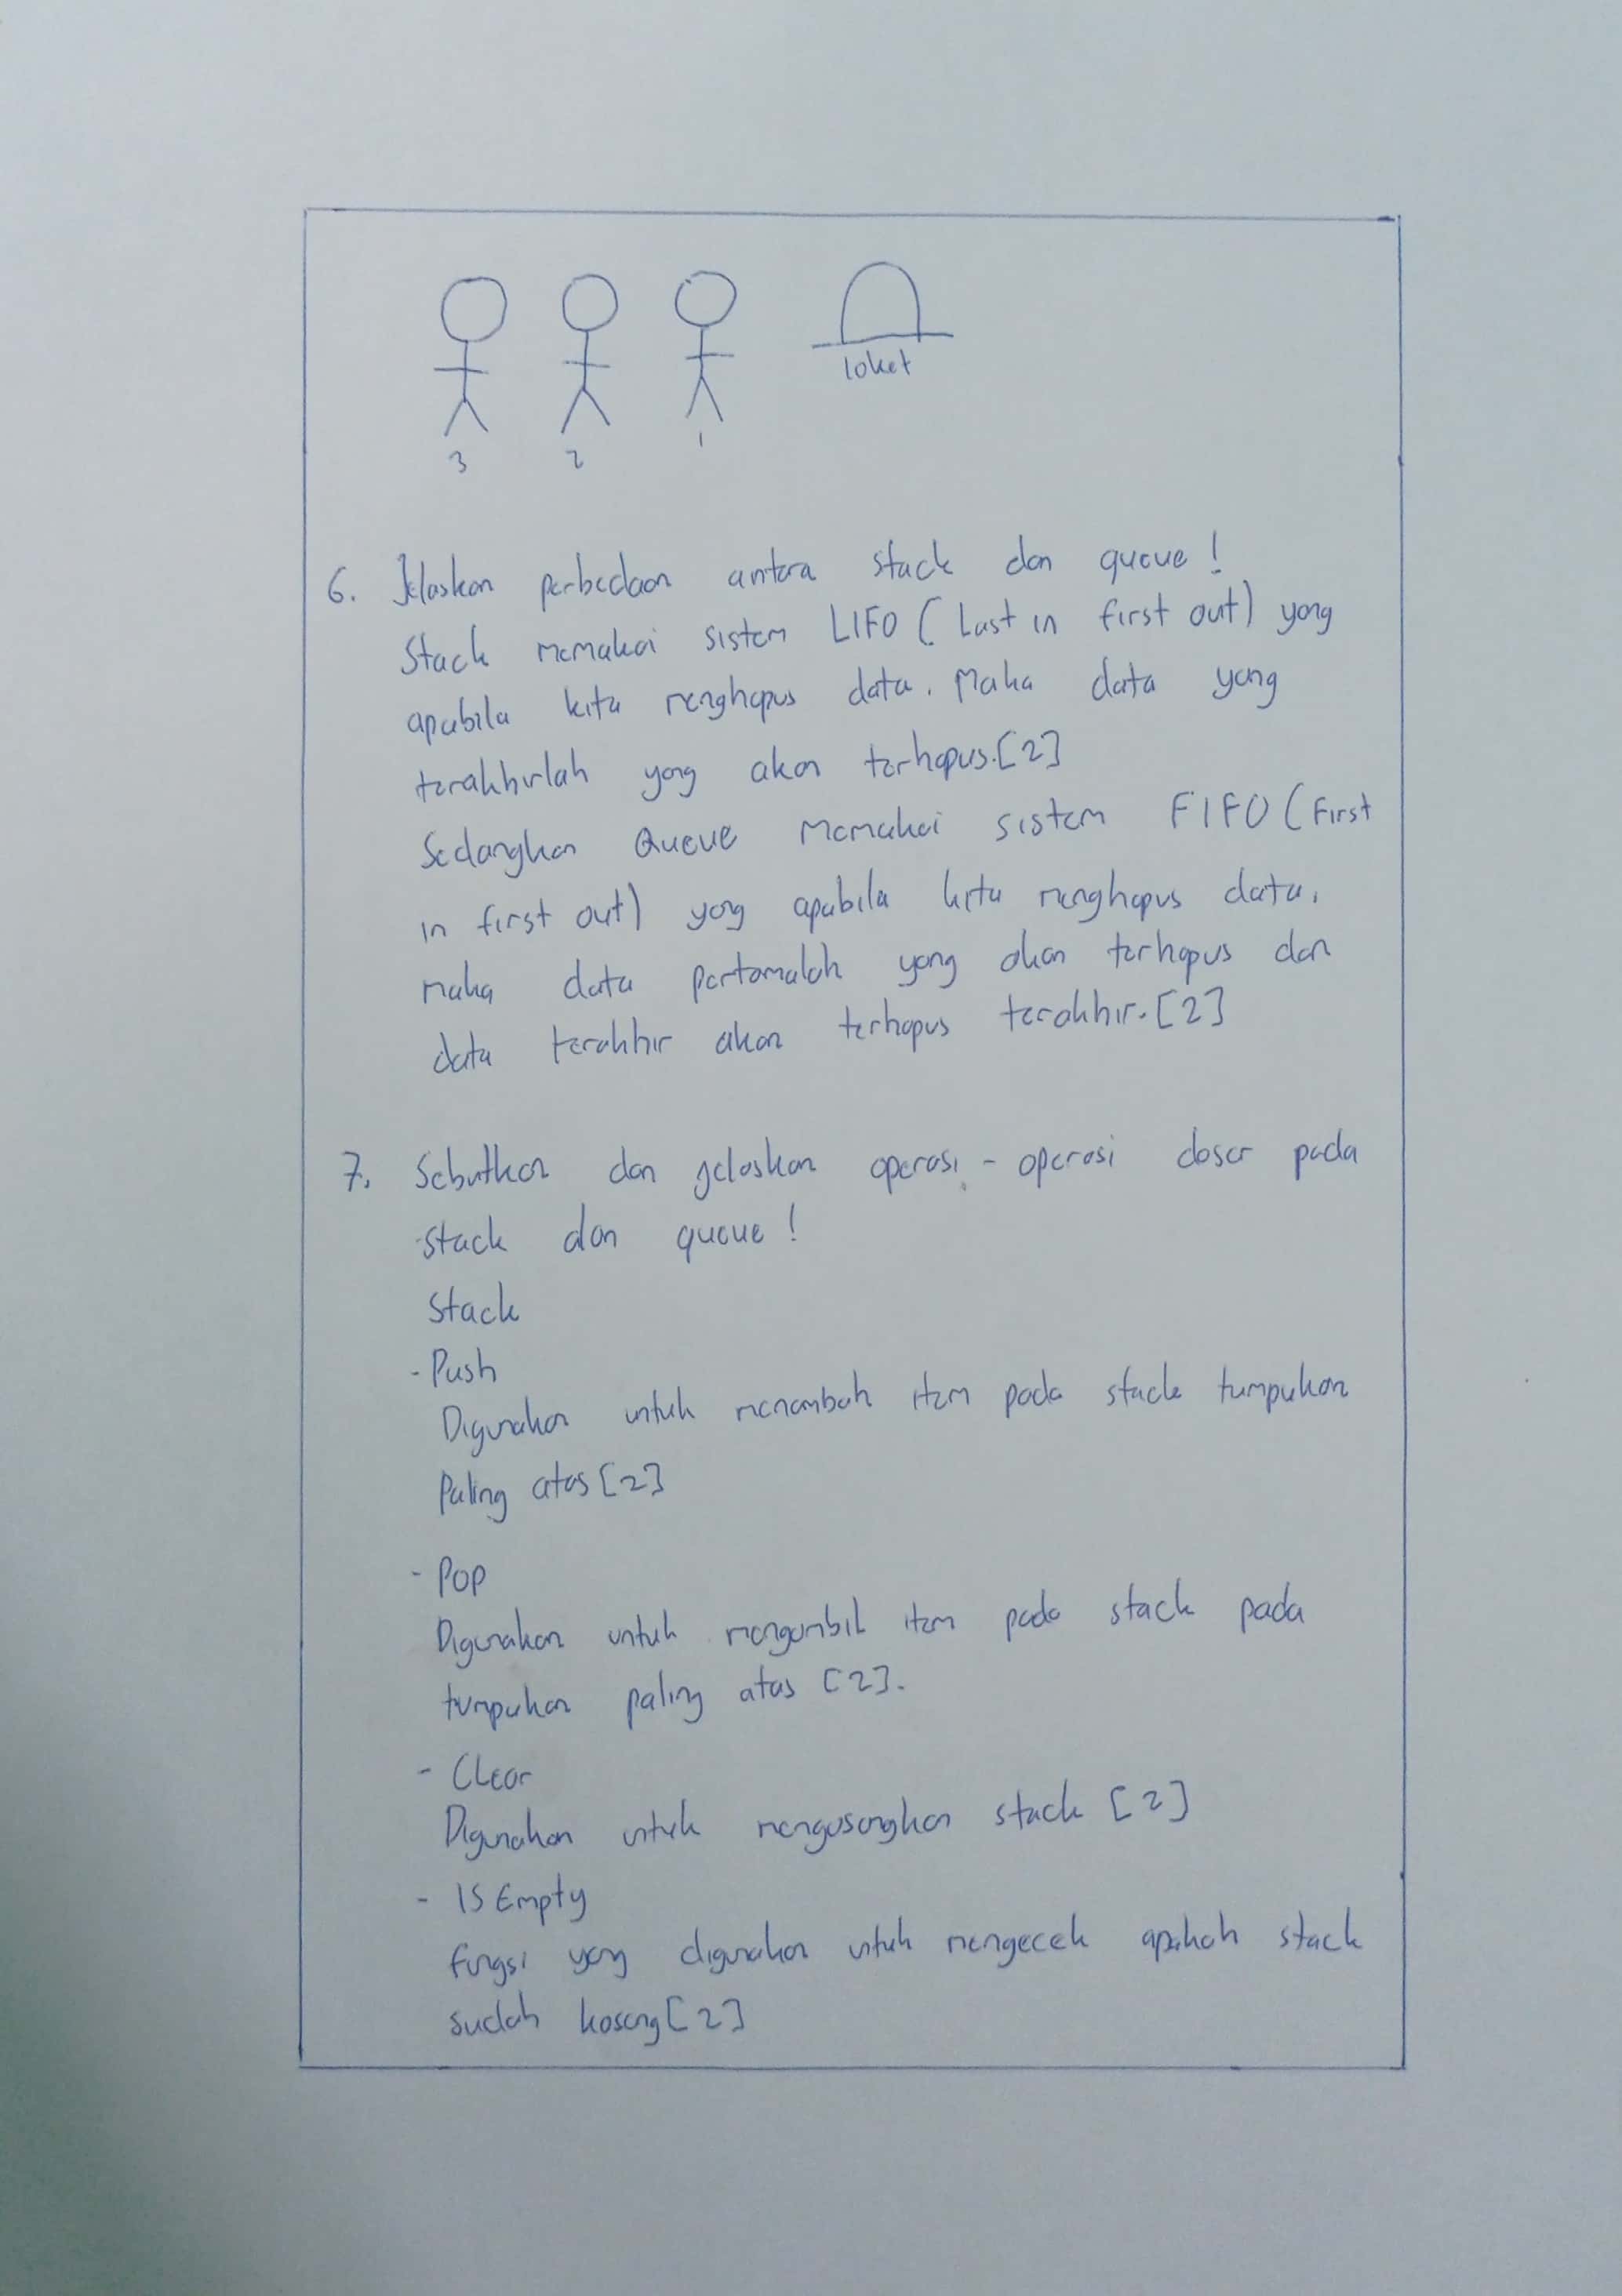 loket
3 2 1
6. Jelaskan perbedaan antara stack dan queue!
Stack memakai sistem LIFO (Last in first out) yang
apabila kita menghapus data. Maka data yang
terakhirlah yang akan terhapus.[2]
Sedangkan Queue memakai sistem FIFO (First
in first out) yang apabila kita menghapus data,
maka data pertamalah yang akan terhapus dan
data terakhir akan terhapus terakhir.[2]
7. Sebutkan dan jelaskan operasi - operasi dasar pada
stack dan queue!
Stack
- Push
Digunakan untuk menambah item pada stack tumpukan
Paling atas [2]
- Pop
Digunakan untuk mengambil item pada stack pada
tumpukan paling atas [2].
- Clear
Digunakan untuk mengosongkan stack [2]
- IS Empty
fungsi yang digunakan untuk mengecek apakah stack
sudah kosong [2]